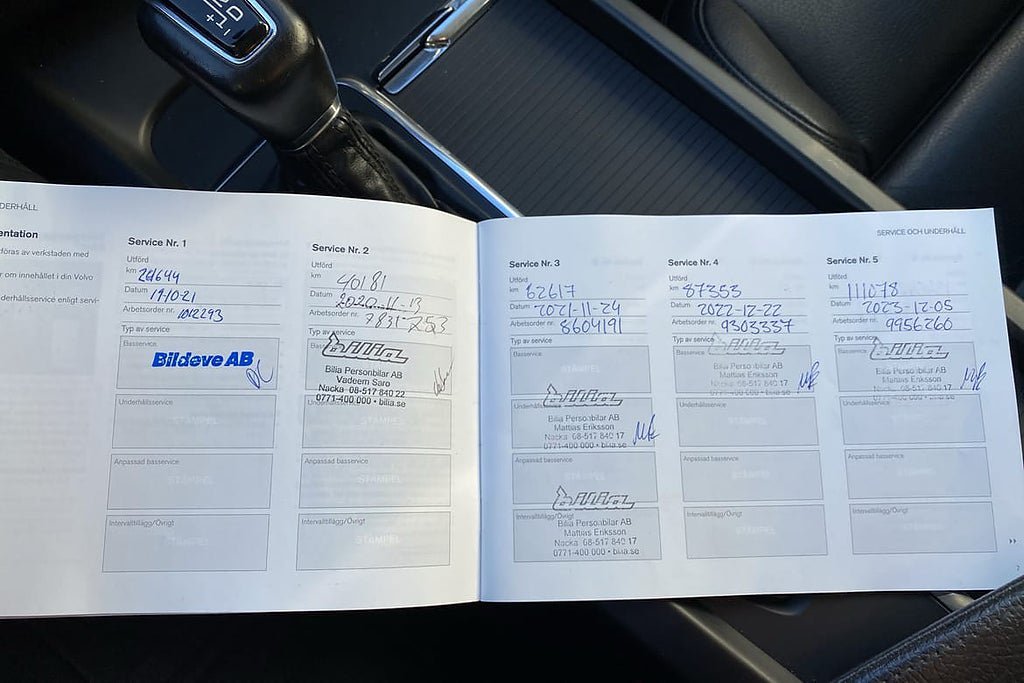 DERHÅLL
entation
döras av verkstaden med
r om innehållet i din Volvo
derhållsservice enligt servi-
Service Nr. 1
Utförd
km
Datum 19-10-21
Arbetsorder nr. 1012293
Typ av service
Basservice
Bildeve AB
Underhållsservice
STÄMPEL
Anpassad basservice
STÄMPEL
Intervalltillägg/Övrigt
STÄMPEL
Service Nr. 2
Utförd
km 40181
Datum 2020-11-13
Arbetsorder nr. 7831-253
Typ av service
bilia
Bilia Personbilar AB
Vadeem Saro
Nacka 08-517 840 22
0771-400 000 • bilia.se
Underhållsservice
STÄMPEL
Anpassad basservice
STÄMPEL
Intervalltillägg/Övrigt
STÄMPEL
SERVICE OCH UNDERHÅLL
Service Nr. 3
Utförd
km 62617
Datum 2021-11-24
Arbetsorder nr. 8604191
Typ av service
Basservice
STÄMPEL
bilia
Underhållsservice
Bilia Personbilar AB
Mattias Eriksson
Nacka 08-517 840 17
0771-400 000 • bilia.se
Anpassad basservice
bilia
Intervalltillägg/Övrigt
Bilia Personbilar AB
Mattias Eriksson
Nacka 08-517 840 17
0771-400 000 • bilia.se
Service Nr. 4
Utförd
km 87353
Datum 2022-12-22
Arbetsorder nr. 9303337
Typ av service
Basservice
bilia
Bilia Personbilar AB
Mattias Eriksson
Nacka 08-517 840 17
0771-400 000 • bilia.se
Underhållsservice
STÄMPEL
Anpassad basservice
STÄMPEL
Intervalltillägg/Övrigt
STÄMPEL
Service Nr. 5
Utförd
km 111078
Datum 2023-12-05
Arbetsorder nr. 9956260
Typ av service
Basservice
bilia
Bilia Personbilar AB
Mattias Eriksson
Nacka 08-517 840 17
0771-400 000 • bilia.se
Underhållsservice
STÄMPEL
Anpassad basservice
STÄMPEL
Intervalltillägg/Övrigt
STÄMPEL